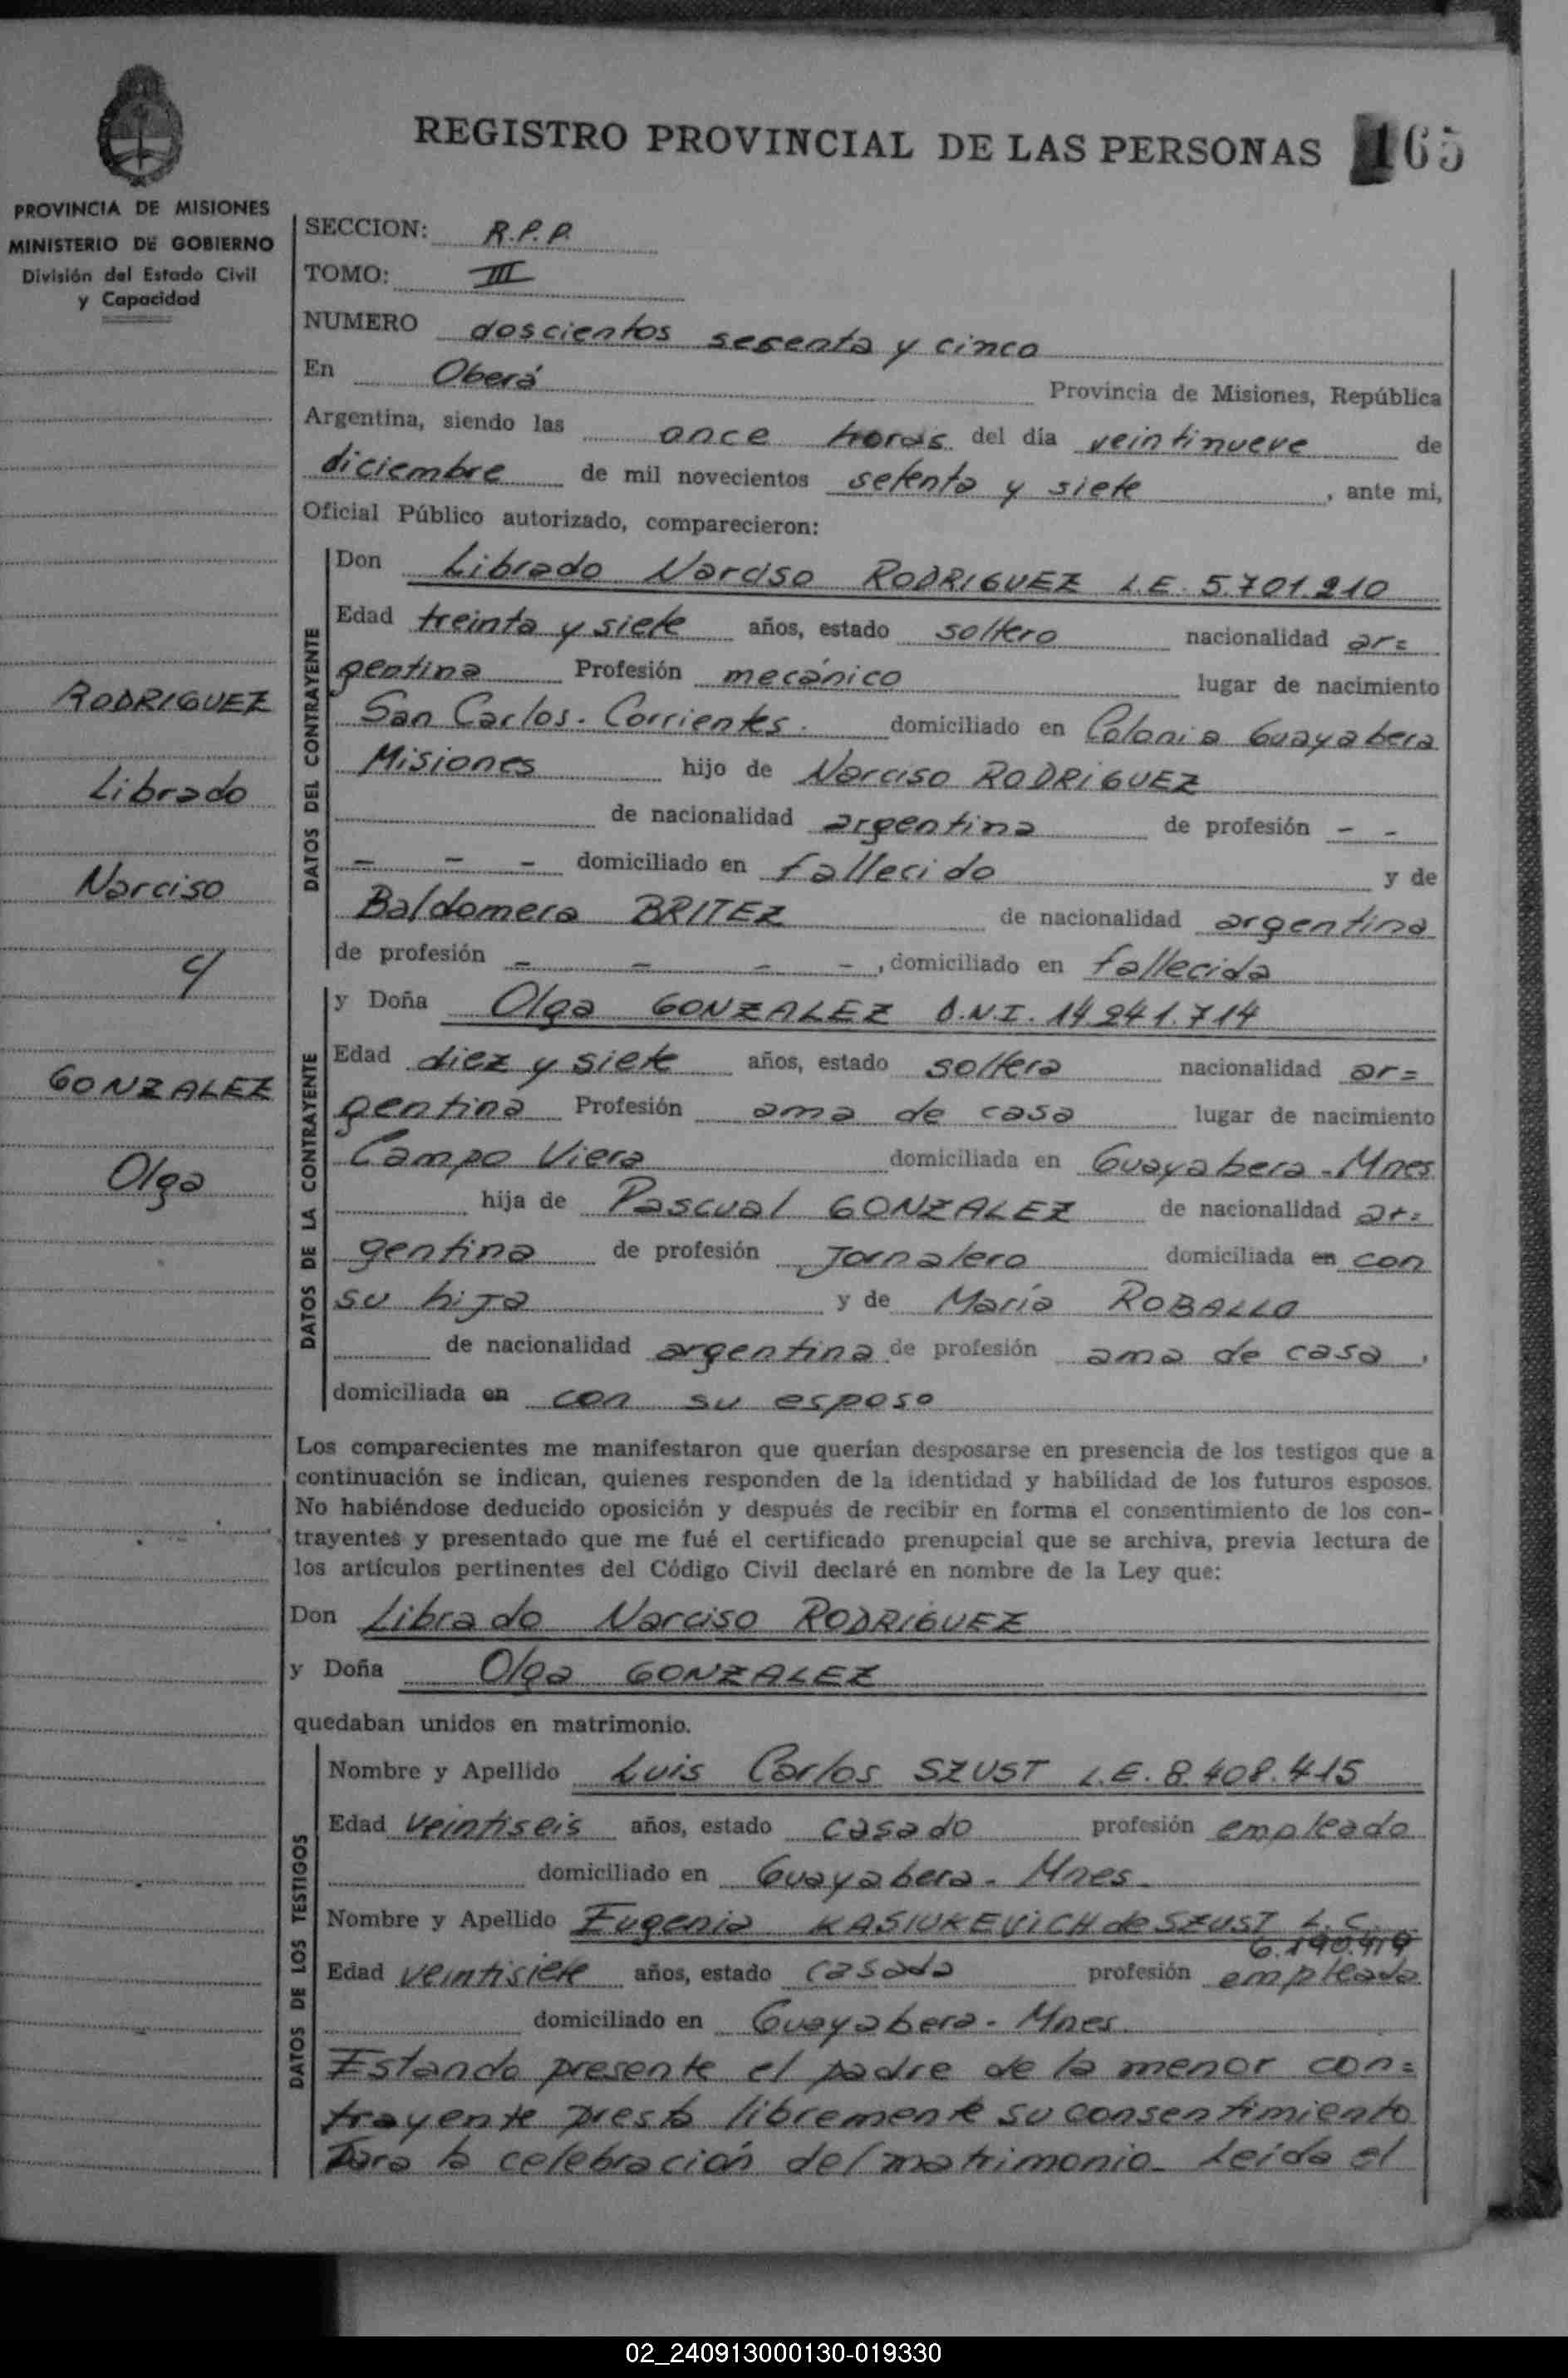 REGISTRO PROVINCIAL DE LAS PERSONAS 165
PROVINCIA DE MISIONES
MINISTERIO DE GOBIERNO
División del Estado Civil
y Capacidad
RODRIGUEZ
Librado
Narciso
y
GONZALEZ
Olga
SECCION: R.P.P.
TOMO: III
NUMERO doscientos sesenta y cinco
En Oberá Provincia de Misiones, República
Argentina, siendo las once horas del día veintinueve de
diciembre de mil novecientos setenta y siete, ante mi,
Oficial Público autorizado, comparecieron:
DATOS DEL CONTRAYENTE
Don Librado Narciso RODRIGUEZ L.E. 5.701.210
Edad treinta y siete años, estado soltero nacionalidad ar=
gentina Profesión mecánico lugar de nacimiento
San Carlos. Corrientes. domiciliado en Colonia Guayabera
Misiones hijo de Narciso RODRIGUEZ
de nacionalidad argentina de profesión - -
- - - domiciliado en fallecido y de
Baldomera BRITEZ de nacionalidad argentina
de profesión - - - -, domiciliado en fallecida
DATOS DE LA CONTRAYENTE
y Doña Olga GONZALEZ D.N.I. 14.241.714
Edad diez y siete años, estado soltera nacionalidad ar=
gentina Profesión ama de casa lugar de nacimiento
Campo Viera domiciliada en Guayabera-Mnes
hija de Pascual GONZALEZ de nacionalidad ar=
gentina de profesión Jornalero domiciliada en con
su hija y de María ROBALLO
de nacionalidad argentina de profesión ama de casa,
domiciliada en con su esposo
Los comparecientes me manifestaron que querían desposarse en presencia de los testigos que a
continuación se indican, quienes responden de la identidad y habilidad de los futuros esposos.
No habiéndose deducido oposición y después de recibir en forma el consentimiento de los con-
trayentes y presentado que me fué el certificado prenupcial que se archiva, previa lectura de
los artículos pertinentes del Código Civil declaré en nombre de la Ley que:
Don Librado Narciso RODRIGUEZ
y Doña Olga GONZALEZ
quedaban unidos en matrimonio.
DATOS DE LOS TESTIGOS
Nombre y Apellido Luis Carlos SZUST L.E. 8.408.415
Edad veintiseis años, estado casado profesión empleado
domiciliado en Guayabera - Mnes.
Nombre y Apellido Eugenia KASIUKEVICH de SZUST L.C.
6.190.419
Edad veintisiete años, estado casada profesión empleada
domiciliado en Guayabera - Mnes.
Estando presente el padre de la menor con=
trayente presta libremente su consentimiento
para la celebración del matrimonio. Leída el
02_240913000130-019330